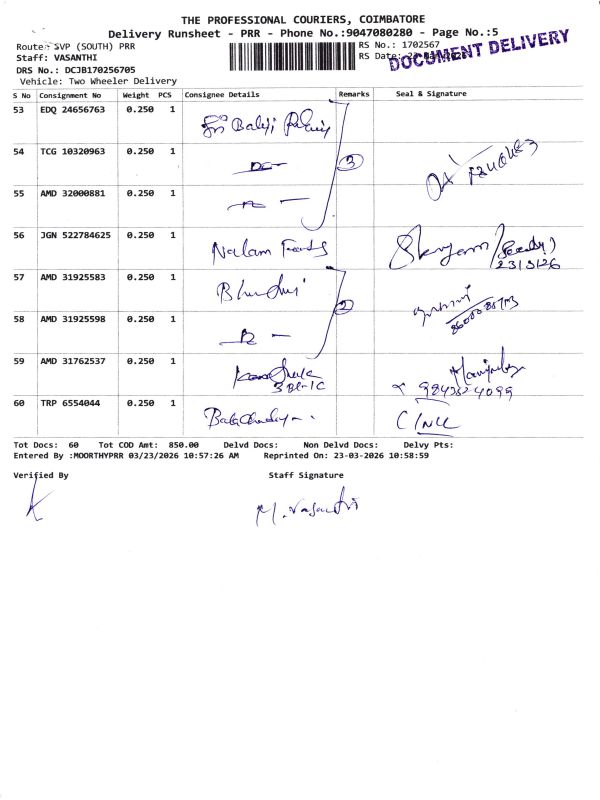 THE PROFESSIONAL COURIERS, COIMBATORE
Delivery Runsheet - PRR - Phone No.:9047080280 - Page No.:5
Route: SVP (SOUTH) PRR
RS No.: 1702567
Staff: VASANTHI
RS Date:
DOCUMENT DELIVERY
DRS No.: DCJB170256705
Vehicle: Two Wheeler Delivery
S No Consignment No Weight PCS Consignee Details Remarks Seal & Signature
53 EDQ 24656763 0.250 1 Sri Balaji
54 TCG 10320963 0.250 1 3
55 AMD 32000881 0.250 1
56 JGN 522784625 0.250 1 Nalam Foods
23/3/26
57 AMD 31925583 0.250 1 2
58 AMD 31925598 0.250 1
59 AMD 31762537 0.250 1
60 TRP 6554044 0.250 1
Tot Docs: 60 Tot COD Amt: 850.00 Delvd Docs: Non Delvd Docs: Delvy Pts:
Entered By :MOORTHYPRR 03/23/2026 10:57:26 AM Reprinted On: 23-03-2026 10:58:59
Verified By Staff Signature
M. Vasanthi